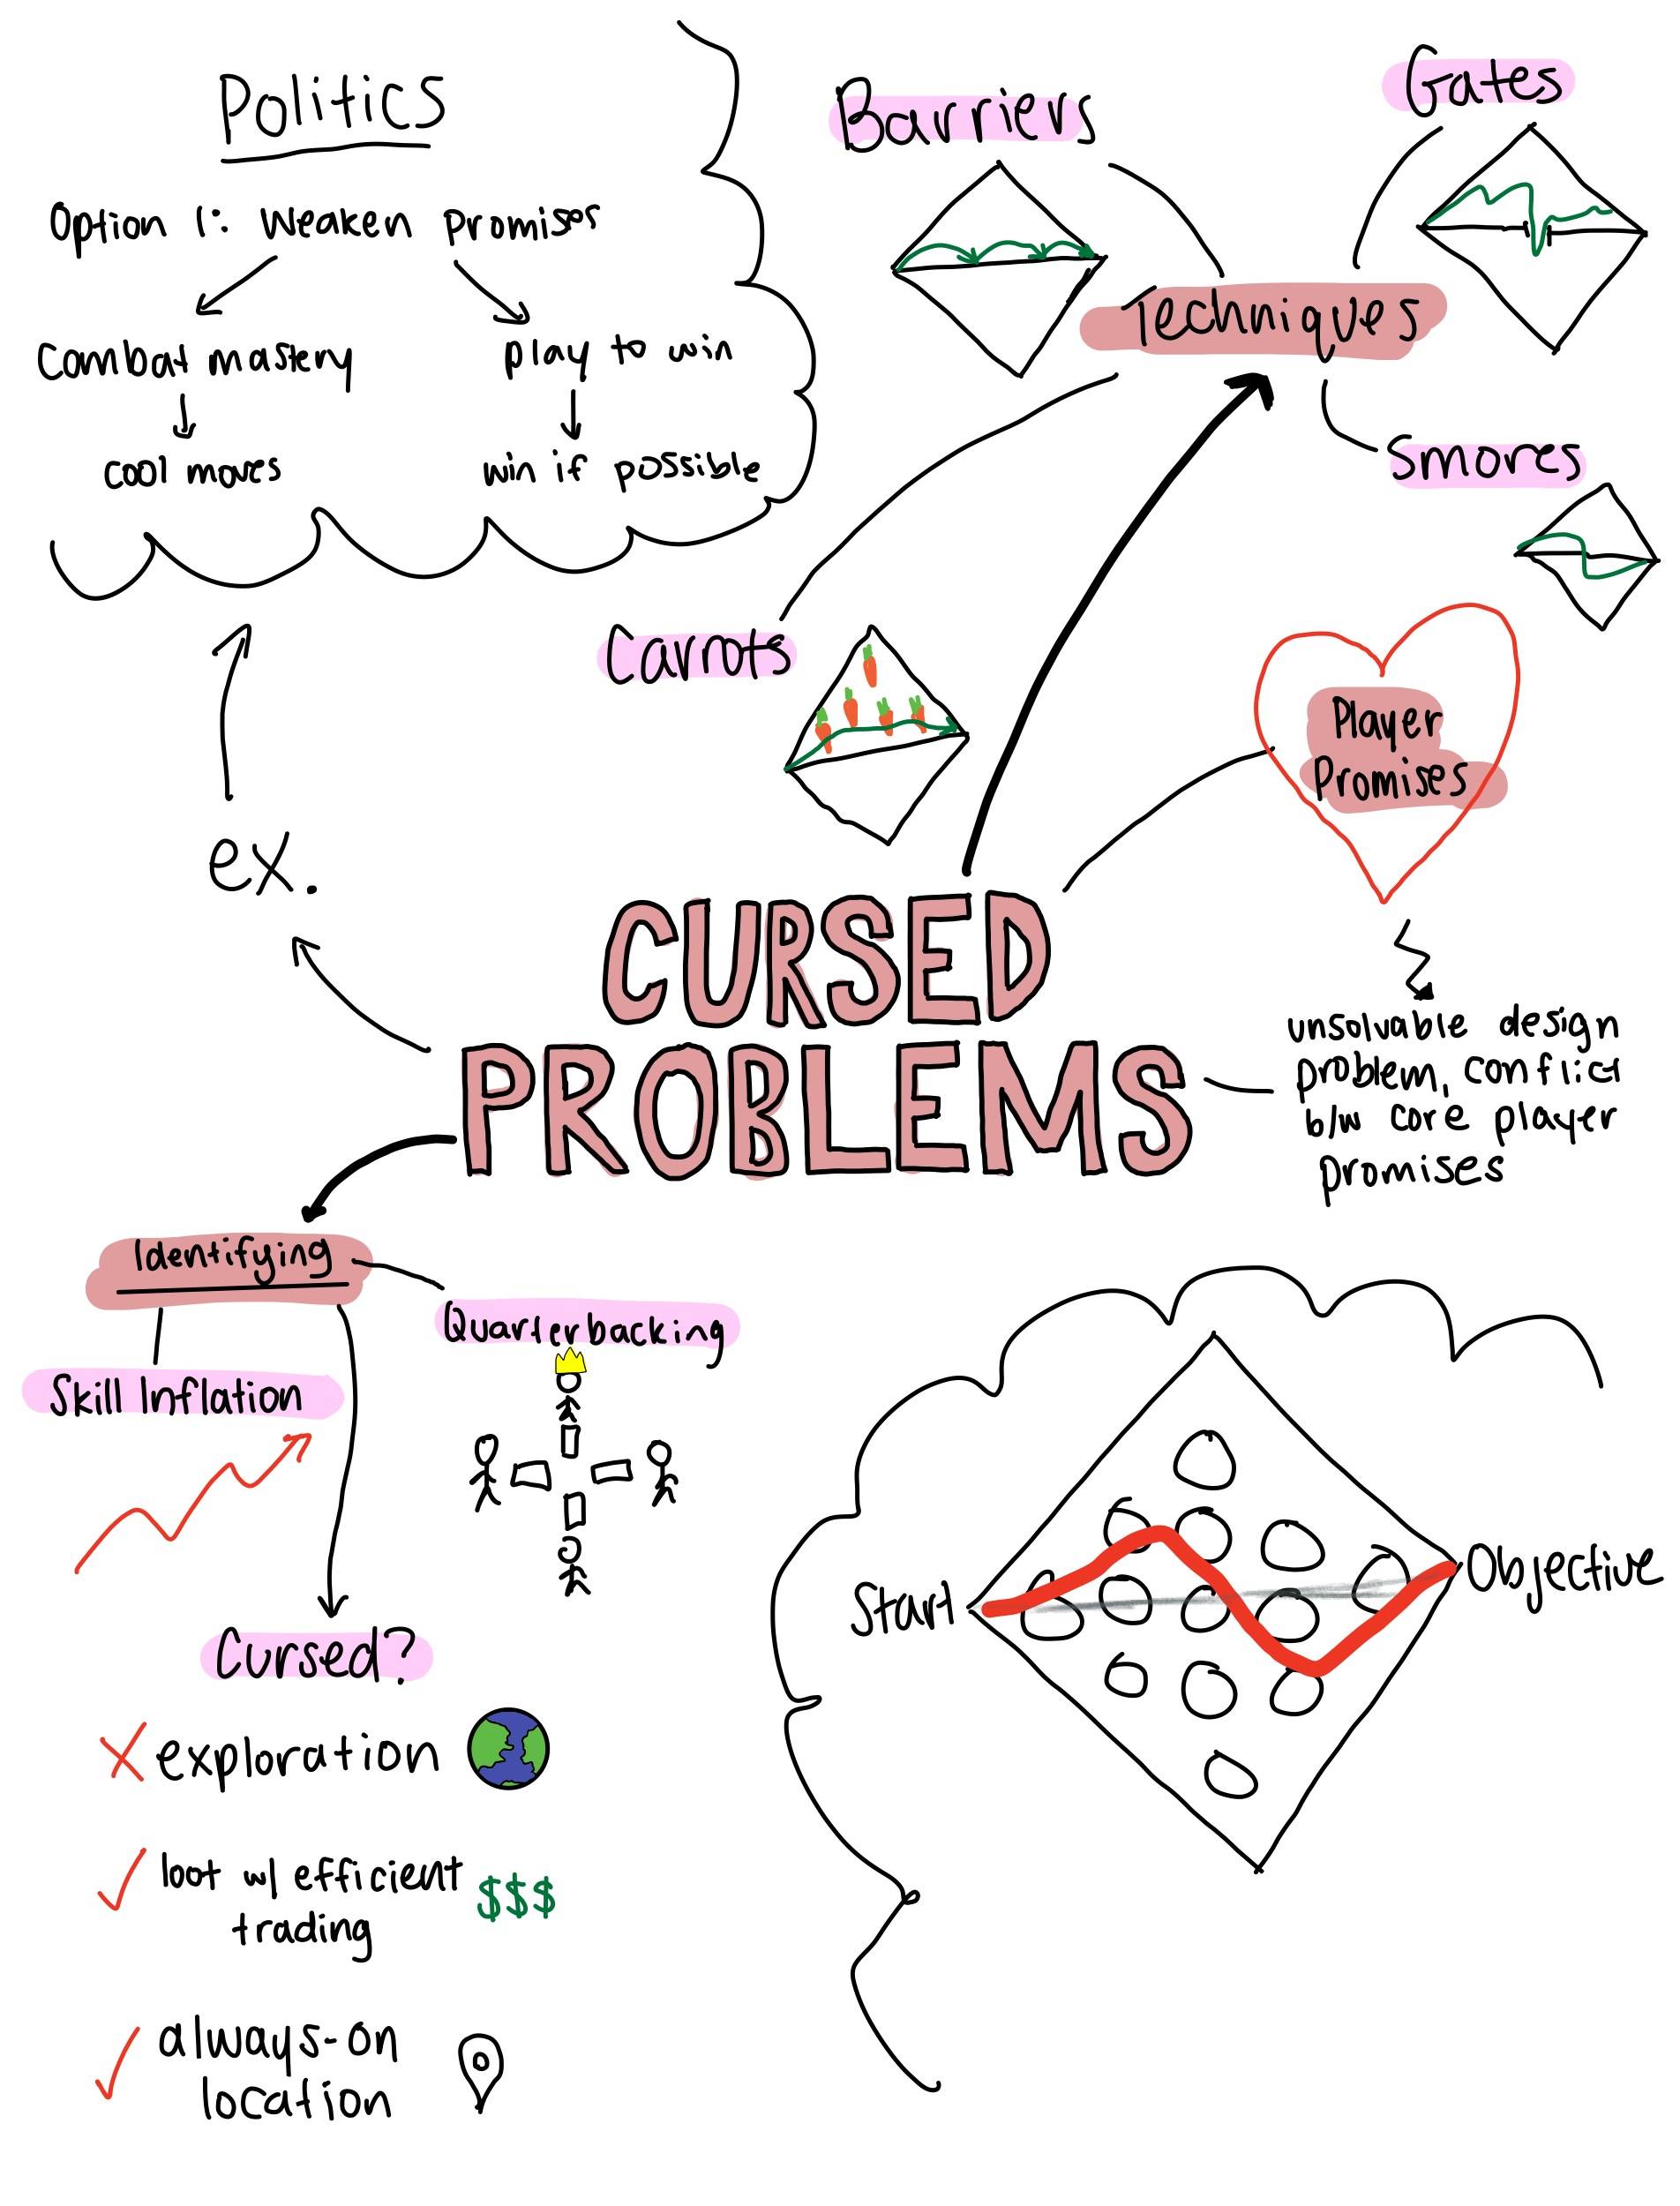 Politics
Option 1: Weaken Promises
Combat mastery
play to win
cool moves
win if possible
Barriers
Gates
Techniques
Smores
Carrots
Player
Promises
ex.
CURSED
PROBLEMS
unsolvable design
problem, conflict
b/w core player
promises
Identifying
Quarterbacking
Skill Inflation
Cursed?
exploration
loot w/ efficient
trading
$$$
always-on
location
Start
Objective